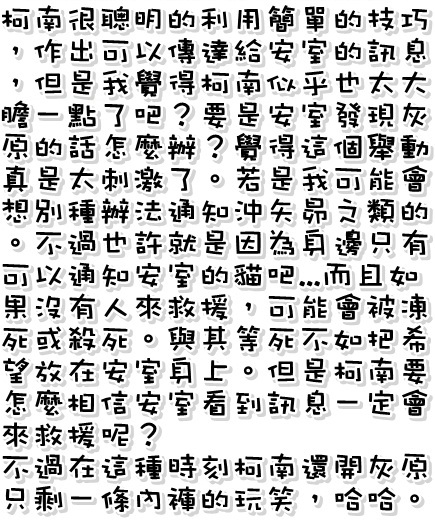 柯南很聰明的利用簡單的技巧
，作出可以傳達給安室的訊息
，但是我覺得柯南似乎也太大
膽一點了吧？要是安室發現灰
原的話怎麼辦？覺得這個舉動
真是太刺激了。若是我可能會
想別種辦法通知沖矢昴之類的
。不過也許就是因為身邊只有
可以通知安室的貓吧...而且如
果沒有人來救援，可能會被凍
死或殺死。與其等死不如把希
望放在安室身上。但是柯南要
怎麼相信安室看到訊息一定會
來救援呢？
不過在這種時刻柯南還開灰原
只剩一條內褲的玩笑，哈哈。